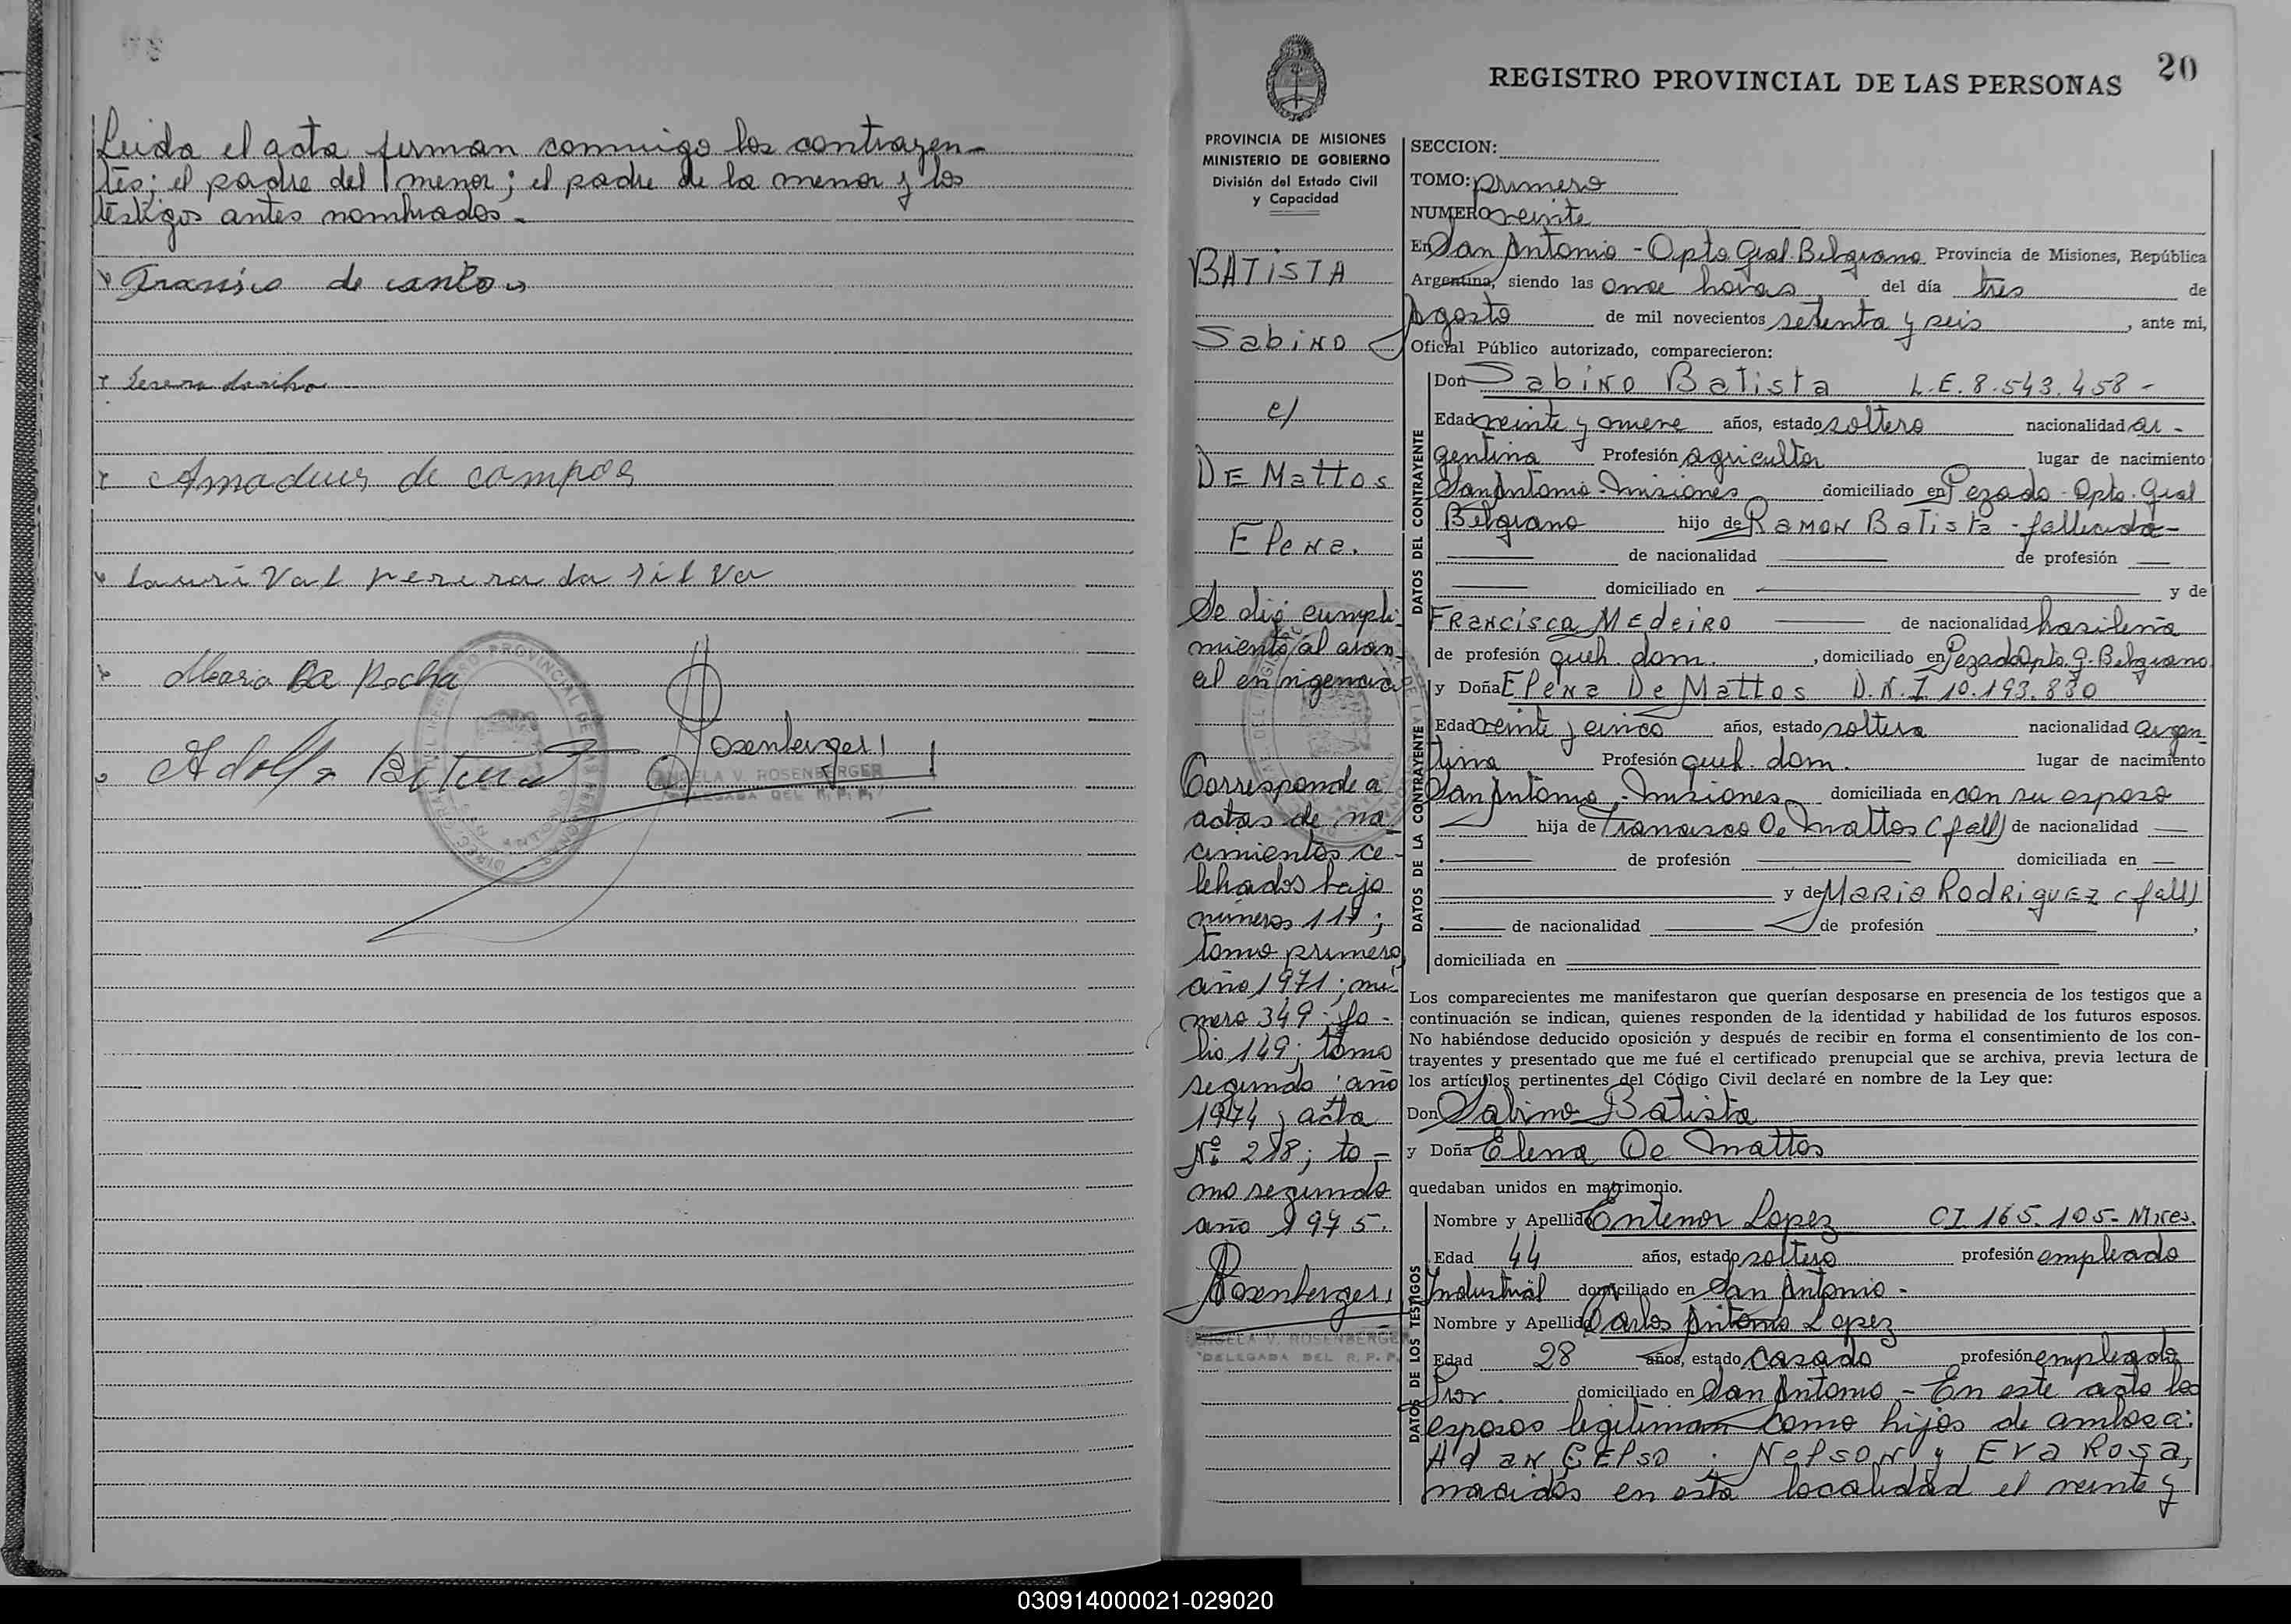 Leida el acta firman conmigo los contrayen-
tes; el padre del menor; el padre de la menor y los
testigos antes nombrados-
Amadeus de campos
Maria Da Rocha
Rosenberger
ANGELA V. ROSENBERGER
DELEGADA DEL R. P. P.
20
REGISTRO PROVINCIAL DE LAS PERSONAS
PROVINCIA DE MISIONES
MINISTERIO DE GOBIERNO
División del Estado Civil
y Capacidad
BATISTA
Sabino
c/
DE Mattos
Elena.
Se dió cumpli-
miento al aran-
cel en vigencia
Corresponde a
actas de na-
cimientos ce-
lebrados bajo
números 117;
tomo primero
año 1971; nú-
mero 349; fo-
lio 149; tomo
segundo año
1974; acta
Nº 218; to-
mo segundo
año 1975.
Rosenberger
ANGELA V. ROSENBERGER
DELEGADA DEL R. P. P.
SECCION:
TOMO: primero
NUMERO veinte
En San Antonio - Dpto Gral. Belgrano Provincia de Misiones, República
Argentina, siendo las once horas del día tres de
Agosto de mil novecientos setenta y seis, ante mi,
Oficial Público autorizado, comparecieron:
DATOS DEL CONTRAYENTE
Don Sabino Batista L.E. 8.543.458-
Edad veinte y nueve años, estado soltero nacionalidad ar-
gentina Profesión agricultor lugar de nacimiento
San Antonio - Misiones domiciliado en Pozado - Dpto. Gral
Belgrano hijo de Ramon Batista - fallecido-
de nacionalidad de profesión
domiciliado en y de
Francisca Medeiro de nacionalidad brasileña
de profesión queh. dom., domiciliado en Pozado Dpto. G. Belgrano
DATOS DE LA CONTRAYENTE
y Doña Elena De Mattos D.N.I 10.193.830
Edad veinte y cinco años, estado soltera nacionalidad argen-
tina Profesión queh. dom. lugar de nacimiento
San Antonio - Misiones domiciliada en con su esposo
hija de Francisco De Mattos (fall) de nacionalidad
de profesión domiciliada en
y de Maria Rodriguez (fall)
de nacionalidad de profesión ,
domiciliada en
Los comparecientes me manifestaron que querían desposarse en presencia de los testigos que a
continuación se indican, quienes responden de la identidad y habilidad de los futuros esposos.
No habiéndose deducido oposición y después de recibir en forma el consentimiento de los con-
trayentes y presentado que me fué el certificado prenupcial que se archiva, previa lectura de
los artículos pertinentes del Código Civil declaré en nombre de la Ley que:
Don Sabino Batista
y Doña Elena De Mattos
quedaban unidos en matrimonio.
DATOS DE LOS TESTIGOS
Nombre y Apellido Entenor Lopez CI. 165.105- Mnes.
Edad 44 años, estado soltero profesión empleado
Industrial domiciliado en San Antonio-
Nombre y Apellido Carlos Antonio Lopez
Edad 28 años, estado casado profesión empleado
domiciliado en San Antonio - En este acto los
esposos legitiman como hijos de ambos a:
Adan Celso; Nelson y Eva Rosa,
nacidos en esta localidad el veinte y
030914000021-029020